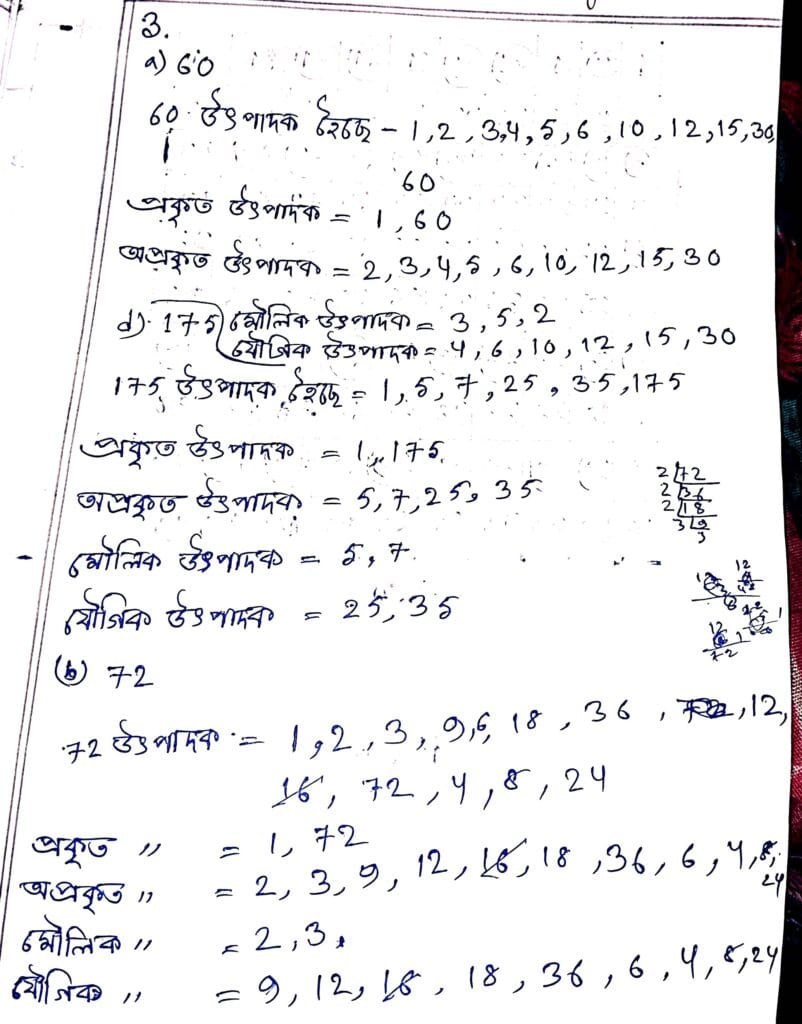 3.
a) 60
60 উৎপাদক হৈছে - 1, 2, 3, 4, 5, 6, 10, 12, 15, 30,
60
প্রকৃত উৎপাদক = 1, 60
অপ্রকৃত উৎপাদক = 2, 3, 4, 5, 6, 10, 12, 15, 30
মৌলিক উৎপাদক = 3, 5, 2
যৌগিক উৎপাদক = 4, 6, 10, 12, 15, 30
d) 175
175 উৎপাদক হৈছে = 1, 5, 7, 25, 35, 175
প্রকৃত উৎপাদক = 1, 175
অপ্রকৃত উৎপাদক = 5, 7, 25, 35
মৌলিক উৎপাদক = 5, 7
যৌগিক উৎপাদক = 25, 35
2 72
2 36
2 18
3 9
3
(b) 72
72 উৎপাদক = 1, 2, 3, 9, 6, 18, 36, 12,
16, 72, 4, 8, 24
প্রকৃত " = 1, 72
অপ্রকৃত " = 2, 3, 9, 12, 16, 18, 36, 6, 4, 8, 24
মৌলিক " = 2, 3
যৌগিক " = 9, 12, 16, 18, 36, 6, 4, 8, 24